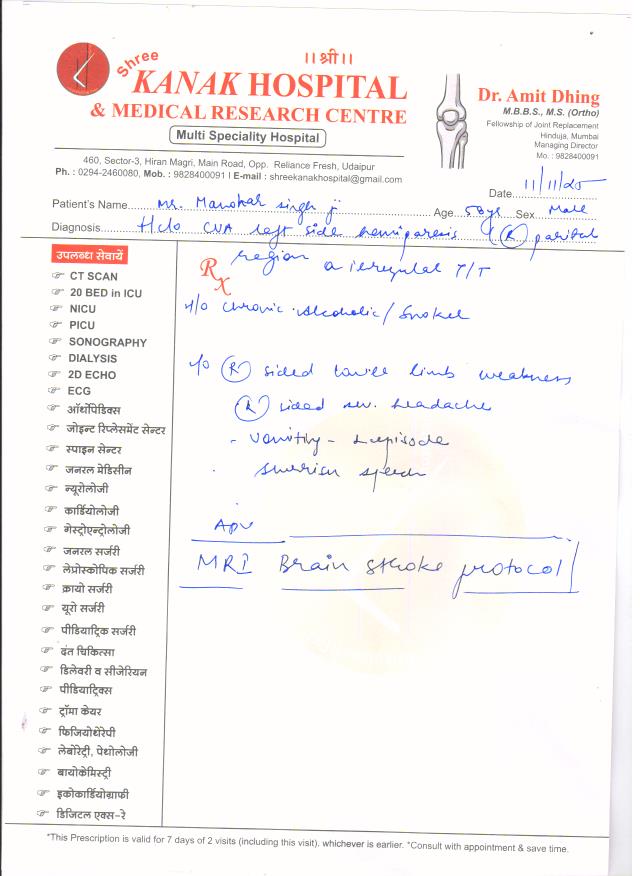 ।। श्री ।।
Shree
KANAK HOSPITAL
& MEDICAL RESEARCH CENTRE
Multi Speciality Hospital
460, Sector-3, Hiran Magri, Main Road, Opp. Reliance Fresh, Udaipur
Ph. : 0294-2460080, Mob. : 9828400091 I E-mail : shreekanakhospital@gmail.com
Dr. Amit Dhing
M.B.B.S., M.S. (Ortho)
Fellowship of Joint Replacement
Hinduja, Mumbai
Managing Director
Mo. : 9828400091
Date 11/11/25
Patient's Name Mr. Manohar singh ji Age 58 yr Sex Male
Diagnosis H/o CVA left side hemiparesis (R) parital
region irregular T/T
Rx
H/o chronic Alcoholic / Smoker
(R) sided limb weakness
(R) sided sev. headache
- Vomiting - episode
speech
Adv
MRI Brain stroke protocol
उपलब्ध सेवायें
CT SCAN
20 BED in ICU
NICU
PICU
SONOGRAPHY
DIALYSIS
2D ECHO
ECG
ऑर्थोपेडिक्स
जोइन्ट रिप्लेसमेंट सेन्टर
स्पाइन सेन्टर
जनरल मेडिसीन
न्यूरोलोजी
कार्डियोलोजी
गेस्ट्रोएन्ट्रोलोजी
जनरल सर्जरी
लेप्रोस्कोपिक सर्जरी
क्रायो सर्जरी
यूरो सर्जरी
पीडियाट्रिक सर्जरी
दंत चिकित्सा
डिलेवरी व सीजेरियन
पीडियाट्रिक्स
ट्रॉमा केयर
फिजियोथेरेपी
लेबोरेट्री, पेथोलोजी
बायोकेमिस्ट्री
इकोकार्डियोग्राफी
डिजिटल एक्स-रे
*This Prescription is valid for 7 days of 2 visits (including this visit). whichever is earlier. *Consult with appointment & save time.